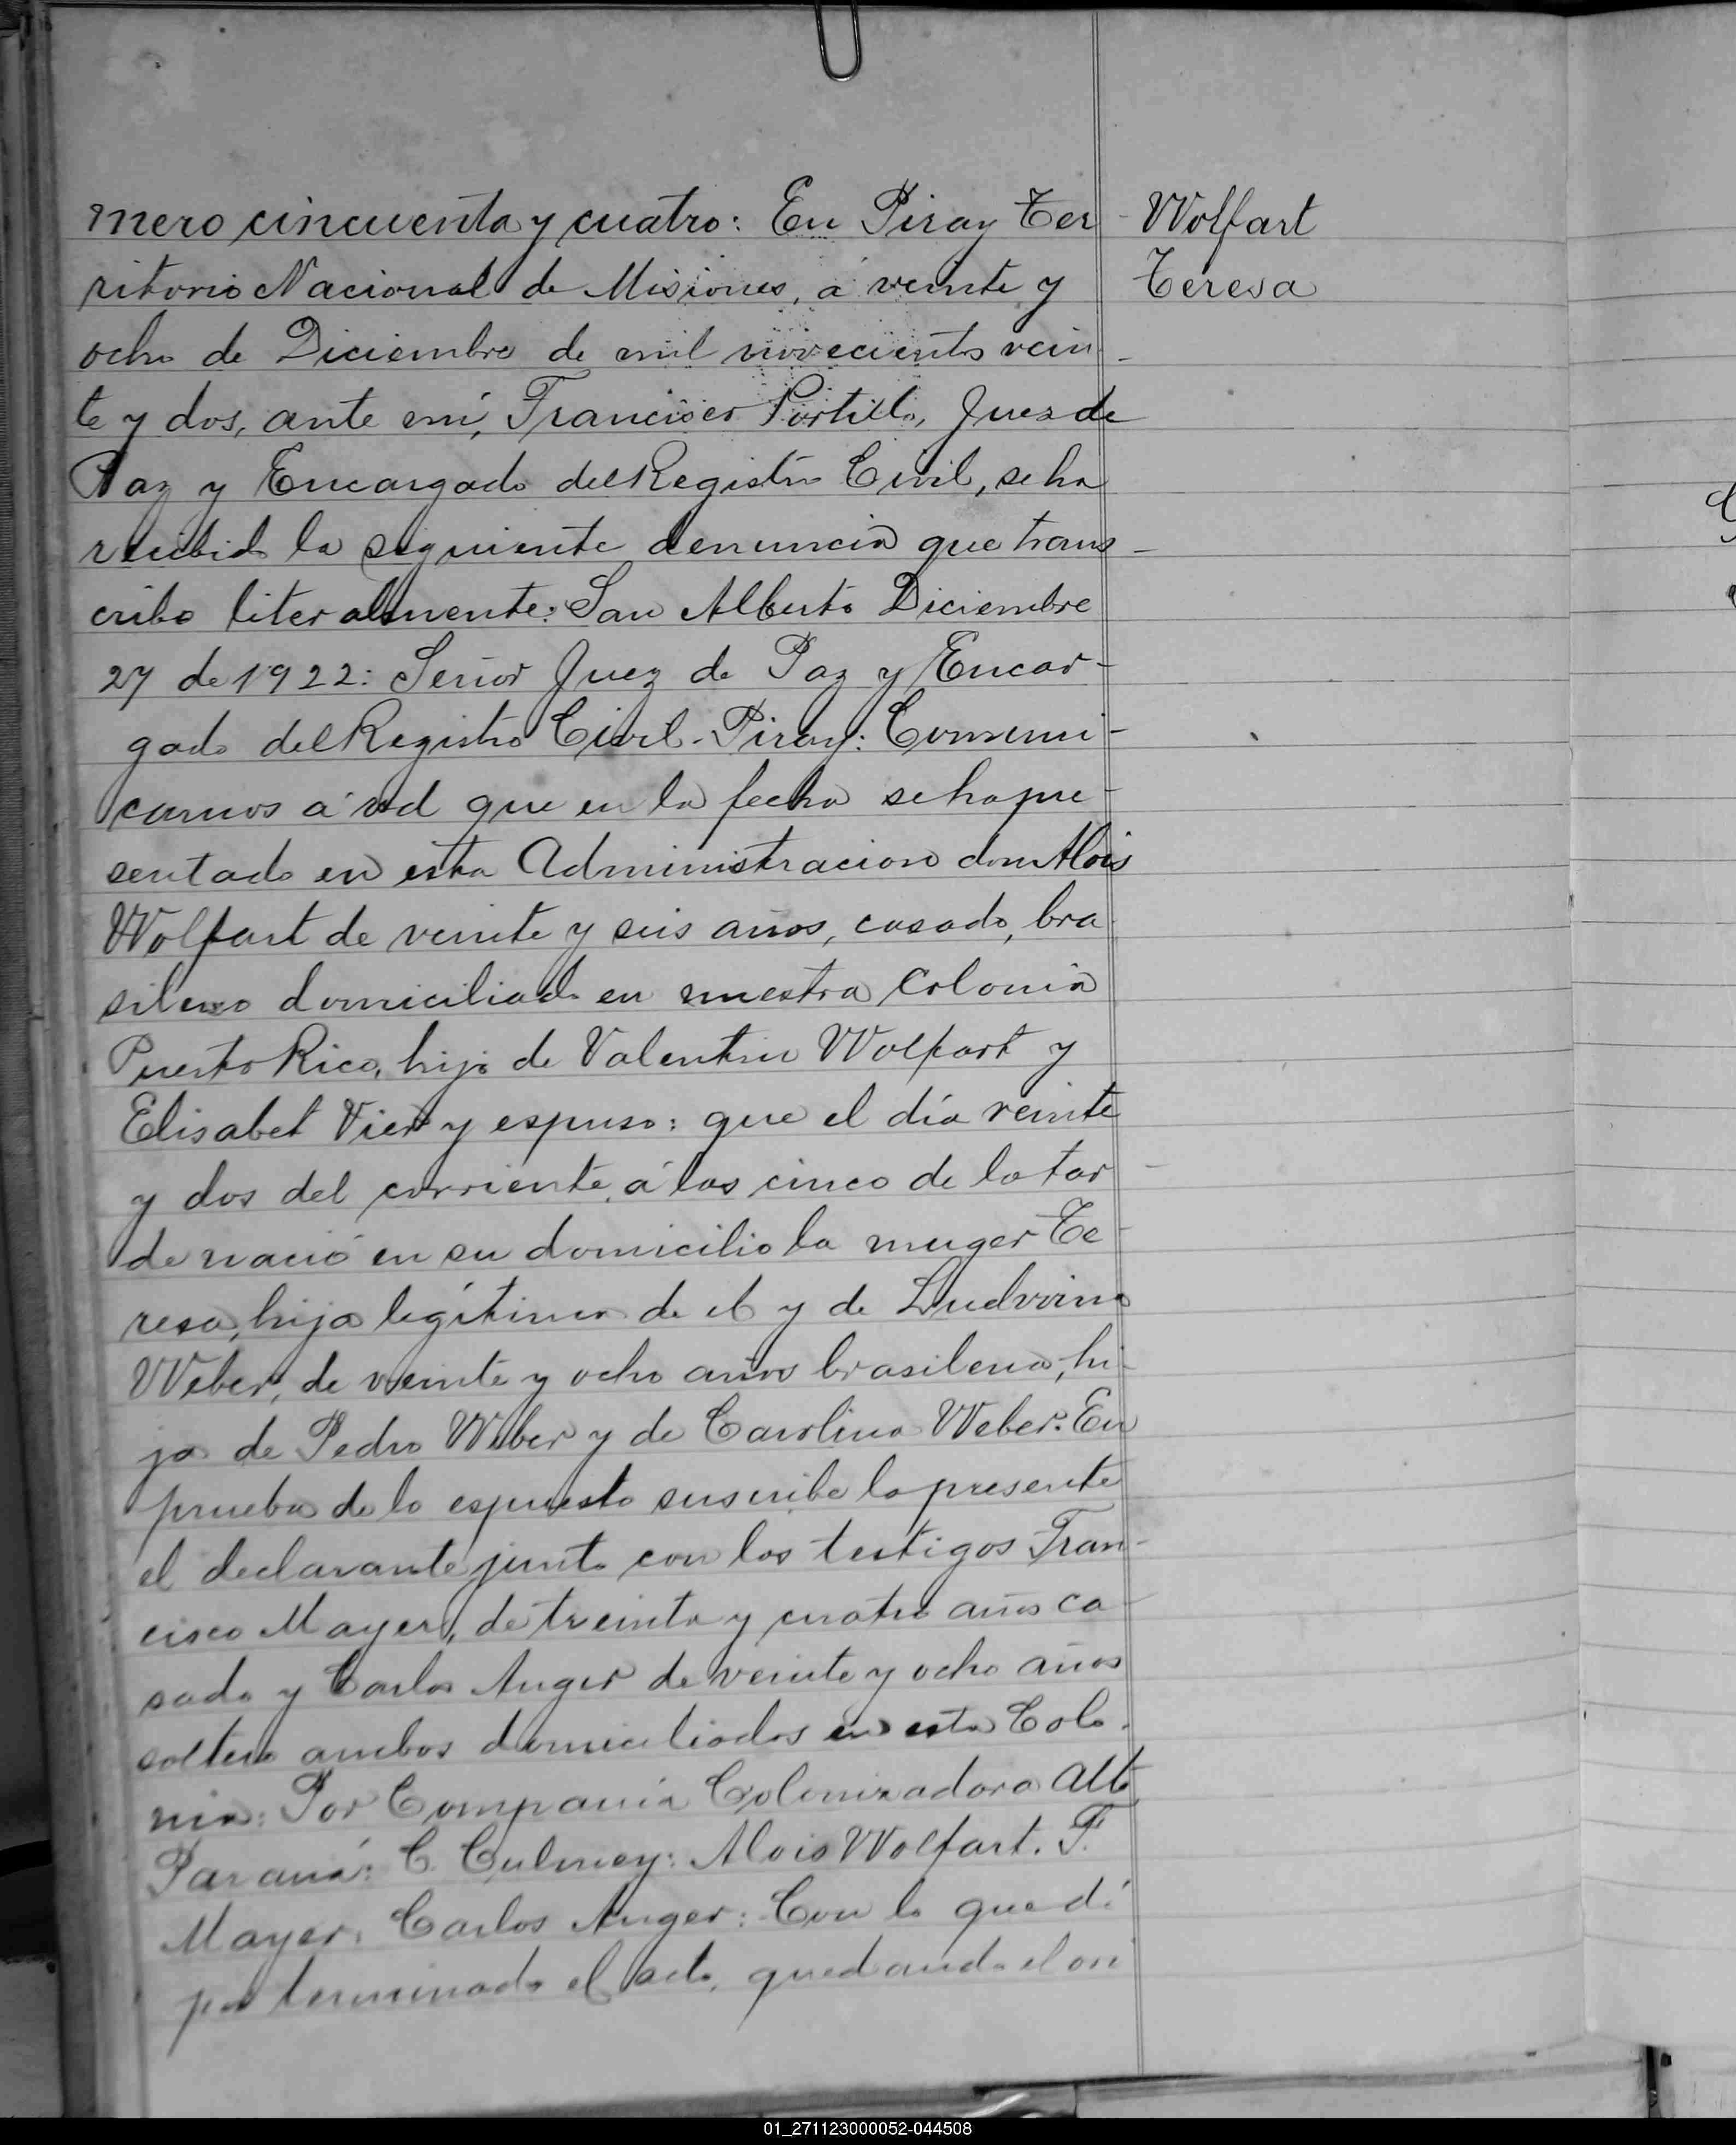 mero cincuenta y cuatro: En Piray Ter
ritorio Nacional de Misiones, á veinte y
ocho de Diciembre de mil novecientos vein
te y dos, ante mí, Francisco Portillo, Juez de
Paz y Encargado del Registro Civil, se ha
recibido la siguiente denuncia que trans-
cribo literalmente: San Alberto Diciembre
27 de 1922: Señor Juez de Paz y Encar-
gado del Registro Civil - Piray: Comuni-
camos á vd que en la fecha se ha pre-
sentado en esta Administracion don Alois
Wolfart de veinte y seis años, casado, bra
silero domiciliado en nuestra Colonia
Puerto Rico, hijo de Valentin Wolfart y
Elisabet Vier y espuso: que el día veinte
y dos del corriente, á las cinco de la tar-
de nació en su domicilio la muger Te-
resa, hija legítima de el y de Ludwina
Weber, de veinte y ocho años brasilena, hi-
ja de Pedro Weber y de Carolina Weber. En
prueba de lo espuesto suscribe la presente
el declarante junto con los testigos Fran-
cisco Mayer, de treinta y cuatro años ca-
sado y Carlos Anger de veinte y ocho años
soltero ambos domiciliados en esta Colo-
nia: Por Compañia Colonizadora Alto
Paraná: C. Culmey: Alois Wolfart. F.
Mayer. Carlos Anger: Con lo que dí
por terminado el acto, quedando el ori
Wolfart
Teresa
01_271123000052-044508